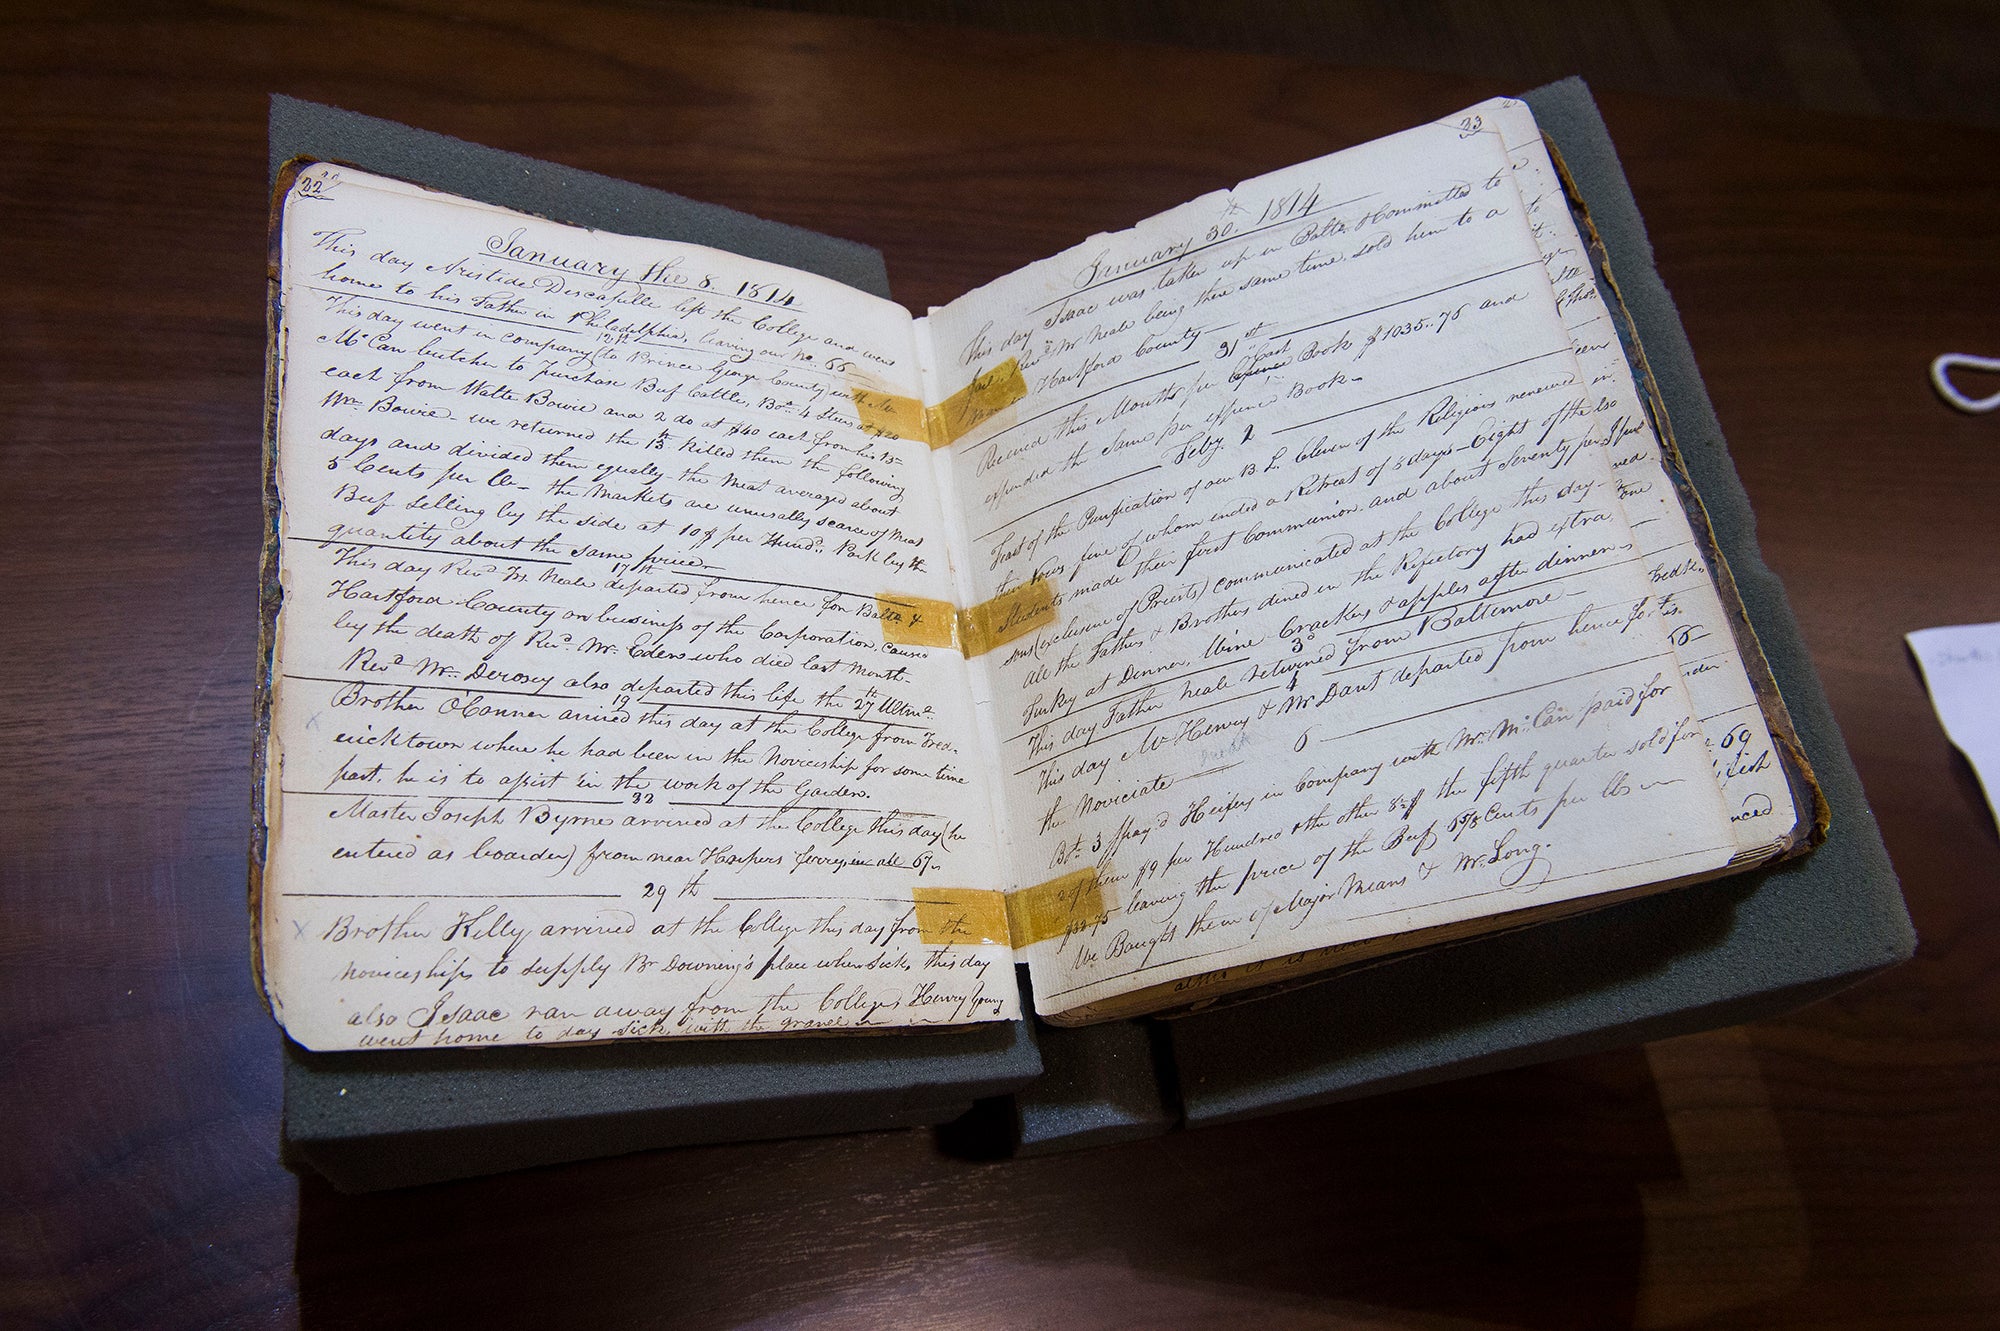 22
January the 8. 1814
This day Aristide Descapille left the College and went
home to his Father in Philadelphia, leaving our No. 66
12th
This day went in company (to Prince George County) with Mr
McCan butcher to purchase Beef Cattle, Bot. 4 Steers at $20
each from Walte Bowie and 2 do at $40 each from his Br
Wm. Bowie - we returned the 13th killed them the following
days and divided them equally - the Meat averaged about
5 Cents per lb - the Markets are unusally scarce of Meat
Beef selling by the side at 10$ per Hund. Pork by the
quantity about the same price -
17th
This day Revd. Frs. Neale departed from hence for Balte. &
Hartford County on business of the Corporation, caused
by the death of Revd. Mr. Eden who died last Month -
Revd. Mr. Derosey also departed this life the 27th Ultmo.
19
Brother O'Conner arrived this day at the College from Fred-
ericktown where he had been in the Noviceship for some time
past. he is to assist in the work of the Garden.
22
Master Joseph Byrne arrived at the College this day (he
entered as boarder) from near Harpers ferry in all 67.
29th
X Brother Kelly arrived at the College this day from the
noviceship to supply Br Downing's place when sick, this day
also Isaac ran away from the College, Henry Young
went home to day sick with the gravel
23
January 30th. 1814
This day Isaac was taken up in Balte. & Committed to
Jail. Revd. Mr Neale being there same time, sold him to a
Man in Hartford County
31st
Received this Months per Cash Book $1035..76 and
expended the same per expence Book -
Feby. 2
Feast of the Purification of our B. L. Eleven of the Religious renewed
their Vows, five of whom ended a Retreat of 8 days - Eight of the
Students made their first Communion, and about Seventy per
sons (exclusive of Priests) communicated at the College this day -
all the Fathers & Brothers dined in the Refectory had extra
Turkey at Dinner, Wine Crackers & apples after dinner
3d
This day Father Neale returned from Baltimore -
4
This day Mr Henry & Mr Dant departed from hence for
the Noviciate
6
Bot. 3 spay'd Heifers in Company with Mr. McCan paid for
2 of them $9 per Hundred & the other the fifth quarter sold for
$32.75 leaving the price of the Beef 5 5/8 Cents per lb
We Bought them of Major Means & Mr. Long.